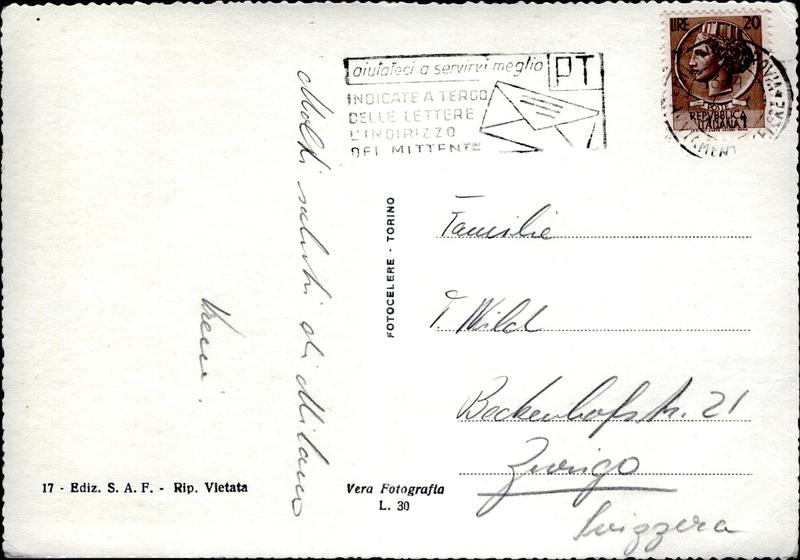 LIRE 20
REPUBBLICA
ITALIANA
aiutateci a servirvi meglio
PT
INDICATE A TERGO
DELLE LETTERE
L'INDIRIZZO
DEL MITTENTE
Molti saluti di Milano
Vreni.
FOTOCELERE - TORINO
Familie
T. Wild
Beckenhofstr. 21
Zurigo
Svizzera
17 - Ediz. S. A. F. - Rip. Vietata
Vera Fotografia
L. 30